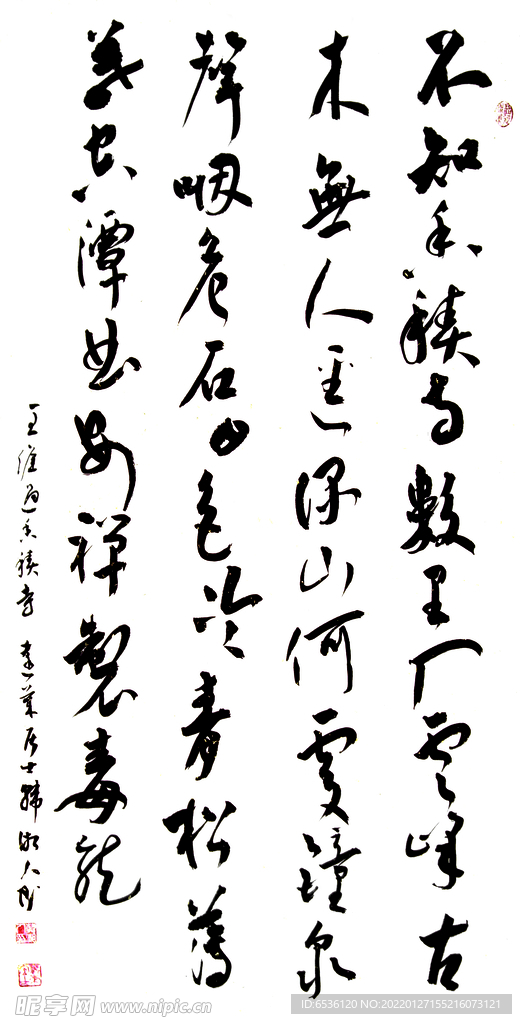 不知香積寺數里入雲峰古
木無人逕深山何處鐘泉
聲咽危石日色冷青松薄
暮空潭曲安禪製毒龍
王維過香積寺 居士韓
昵享网 www.nipic.cn
ID:6536120 NO:20220127155216073121